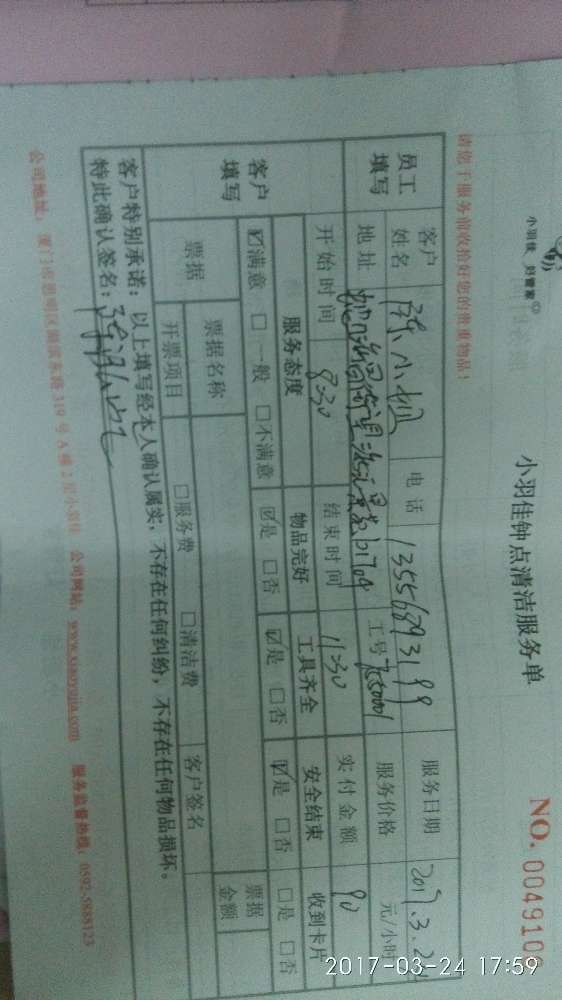 小羽佳 归管家
小羽佳钟点清洁服务单
NO. 004910
请您于服务前收拾好您的贵重物品!
员工填写
客户姓名 陈小姐 电话 13556893199 服务日期 2017.3.24
地址 工号 服务价格 元/小时
客户填写
开始时间 8:30 结束时间 11:30 实付金额 90
服务态度 物品完好 工具齐全 安全结束 收到卡片
☑满意 □一般 □不满意 ☑是 □否 ☑是 □否 ☑是 □否 □是 □否
票据 票据名称 票据金额
开票项目 □服务费 □清洁费 客户签名
客户特别承诺:以上填写经本人确认属实,不存在任何纠纷,不存在任何物品损坏。
特此确认签名:
公司地址:厦门市思明区湖滨东路319号A楼2层小羽佳 公司网站:www.xiaoyujia.com 服务监督热线:0592-5888123
2017-03-24 17:59